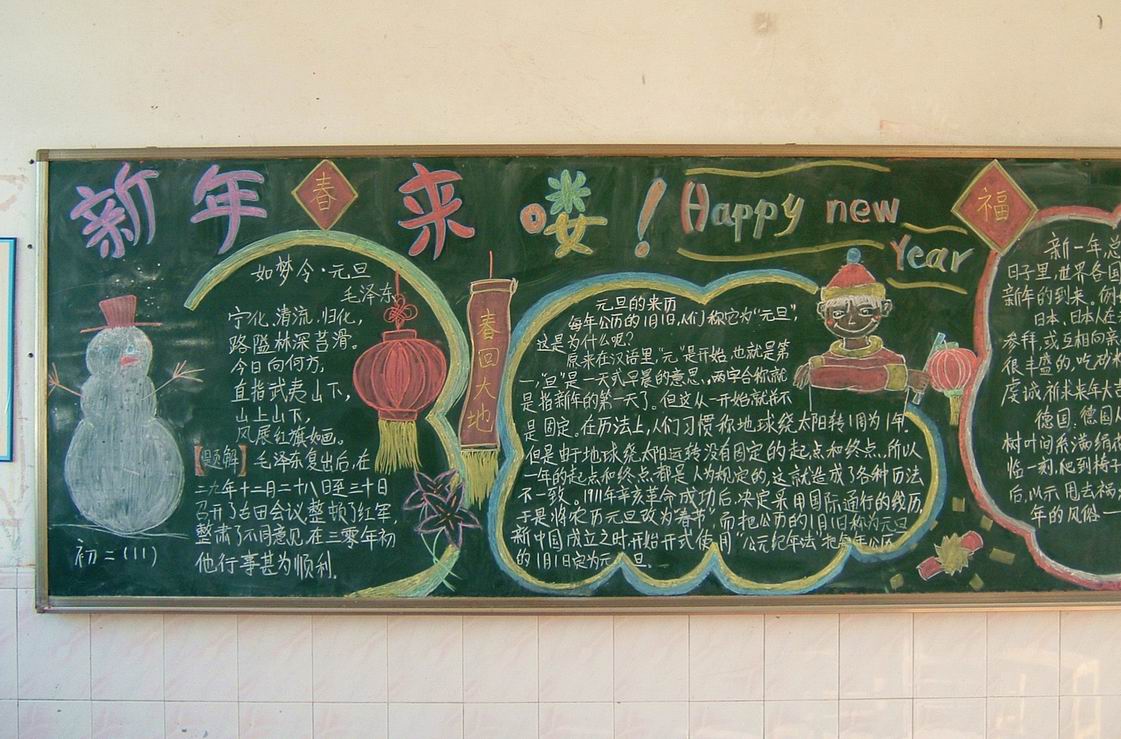 新年 春 来喽！
Happy new
Year
福
如梦令·元旦
毛泽东
宁化、清流、归化，
路隘林深苔滑。
今日向何方，
直指武夷山下，
山上山下，
风展红旗如画。
【题解】毛泽东复出后，在
二九年十二月二十八日至三十日
召开了古田会议，整顿了红军，
整肃了不同意见，在三零年初
他行事甚为顺利。
初二(11)
春回大地
元旦的来历
每年公历的1月1日，人们称它为“元旦”，
这是为什么呢？
原来在汉语里，“元”是开始，也就是第
一，“旦”是一天或早晨的意思，两字合称就
是指新年的第一天了。但这从一开始就并不
是固定。在历法上，人们习惯称地球绕太阳转1周为1年，
但是由于地球绕太阳运转没有固定的起点和终点，所以
一年的起点和终点都是人为规定的，这就造成了各种历法
不一致。1911年辛亥革命成功后，决定采用国际通行的线历，
于是将农历元旦改为“春节”，而把公历的1月1日称为元旦
新中国成立之时开始开式使用“公元纪年法”把每年公历
的1月1日定为元旦。
新一年总
日子里，世界各国
新年的到来。例
日本，日本人在
参拜，或互相向亲
很丰盛的，吃
虔诚，祈求来年大吉
德国，德国人
树叶间系满绢花
临一刻，爬到椅子
后，以示甩去祸
年的风俗一